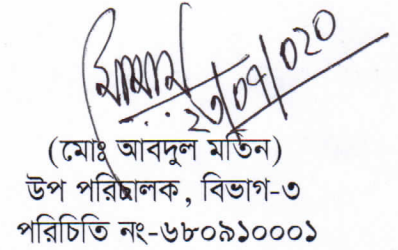 (মোঃ আবদুল মতিন)
উপ পরিচালক, বিভাগ-৩
পরিচিতি নং-৬৮০৯১০০০১